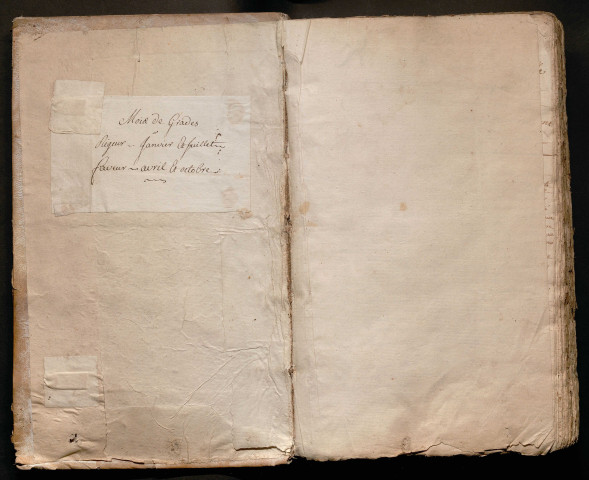 Mois de Grades
Rigueur - Janvier & Juillet
faveur - avril & octobre